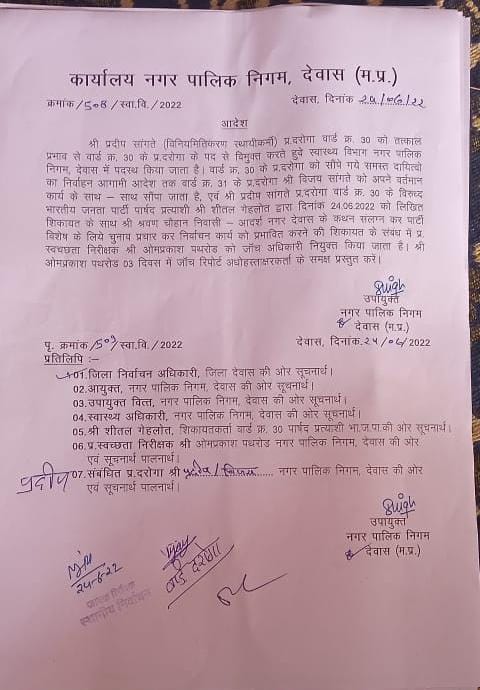 कार्यालय नगर पालिक निगम, देवास (म.प्र.)
क्रमांक/508/स्वा.वि./2022 देवास, दिनांक 24/06/22
आदेश
श्री प्रदीप सांगते (विनियमितिकरण स्थायीकर्मी) प्र.दरोगा वार्ड क्र. 30 को तत्काल
प्रभाव से वार्ड क्र. 30 के प्र.दरोगा के पद से विमुक्त करते हुवे स्वास्थ्य विभाग नगर पालिक
निगम, देवास में पदस्थ किया जाता है। वार्ड क्र. 30 के प्र.दरोगा को सौंपे गये समस्त दायित्वो
का निर्वाहन आगामी आदेश तक वार्ड क्र. 31 के प्र.दरोगा श्री विजय सांगते को अपने वर्तमान
कार्य के साथ – साथ सौंपा जाता है, एवं श्री प्रदीप सांगते प्र.दरोगा वार्ड क्र. 30 के विरूध्द
भारतीय जनता पार्टी पार्षद प्रत्याशी श्री शीतल गेहलोत द्वारा दिनांक 24.06.2022 को लिखित
शिकायत के साथ श्री श्रवण चौहान निवासी – आदर्श नगर देवास के कथन सलग्न कर पार्टी
विशेष के लिये चुनाव प्रचार कर निर्वाचन कार्य को प्रभावित करने की शिकायत के संबंध में प्र.
स्वच्छता निरीक्षक श्री ओमप्रकाश पथरोड को जाँच अधिकारी नियुक्त किया जाता है। श्री
ओमप्रकाश पथरोड 03 दिवस में जाँच रिपोर्ट अधोहस्ताक्षरकर्ता के समक्ष प्रस्तुत करें।
उपायुक्त
नगर पालिक निगम
देवास (म.प्र.)
पृ. क्रमांक/509/स्वा.वि./2022 देवास, दिनांक.24/06/2022
प्रतिलिपि :–
01.जिला निर्वाचन अधिकारी, जिला देवास की ओर सूचनार्थ।
02.आयुक्त, नगर पालिक निगम, देवास की ओर सूचनार्थ।
03.उपायुक्त वित्त, नगर पालिक निगम, देवास की ओर सूचनार्थ।
04.स्वास्थ्य अधिकारी, नगर पालिक निगम, देवास की ओर सूचनार्थ।
05.श्री शीतल गेहलोत, शिकायतकर्ता वार्ड क्र. 30 पार्षद प्रत्याशी भा.ज.पा.की ओर सूचनार्थ।
06.प्र.स्वच्छता निरीक्षक श्री ओमप्रकाश पथरोड नगर पालिक निगम, देवास की ओर
एवं सूचनार्थ पालनार्थ।
प्रदीप 07.संबंधित प्र.दरोगा श्री प्रदीप / विजय...... नगर पालिक निगम, देवास की ओर
एवं सूचनार्थ पालनार्थ।
उपायुक्त
नगर पालिक निगम
देवास (म.प्र.)
24-6-22
वार्ड दरोगा
स्थानीय निर्वाचन